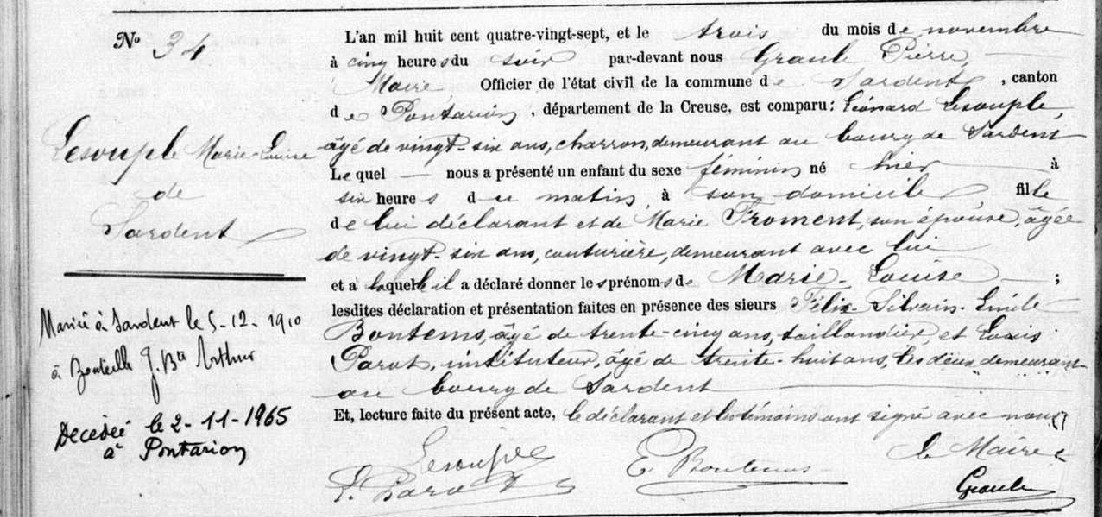 N° 34
Lesouple Marie-Louise
de
Sardent
Mariée à Sardent le 5-12-1910
à Bouteille J. Bte Arthur
Décédée le 2-11-1965
à Pontarion
L'an mil huit cent quatre-vingt-sept, et le trois du mois de novembre
à cinq heures du soir par-devant nous Graule Pierre,
Maire Officier de l'état civil de la commune de Sardent, canton
de Pontarion, département de la Creuse, est comparu: Léonard Lesouple,
âgé de vingt-six ans, charron, demeurant au bourg de Sardent
Lequel nous a présenté un enfant du sexe féminin né hier à
six heures du matin, à son domicile, fille
de lui déclarant et de Marie Froment, son épouse, âgée
de vingt-six ans, couturière, demeurant avec lui
et à laquelle il a déclaré donner les prénoms de Marie-Louise;
lesdites déclaration et présentation faites en présence des sieurs Félix-Silvain-Emile
Bontems, âgé de trente-cinq ans, taillandier, et Louis
Parot, instituteur, âgé de trente-huit ans, les deux demeurant
au bourg de Sardent
Et, lecture faite du présent acte, le déclarant et les témoins ont signé avec nous
Lesouple E Bontems Le Maire
L. Parot Graule